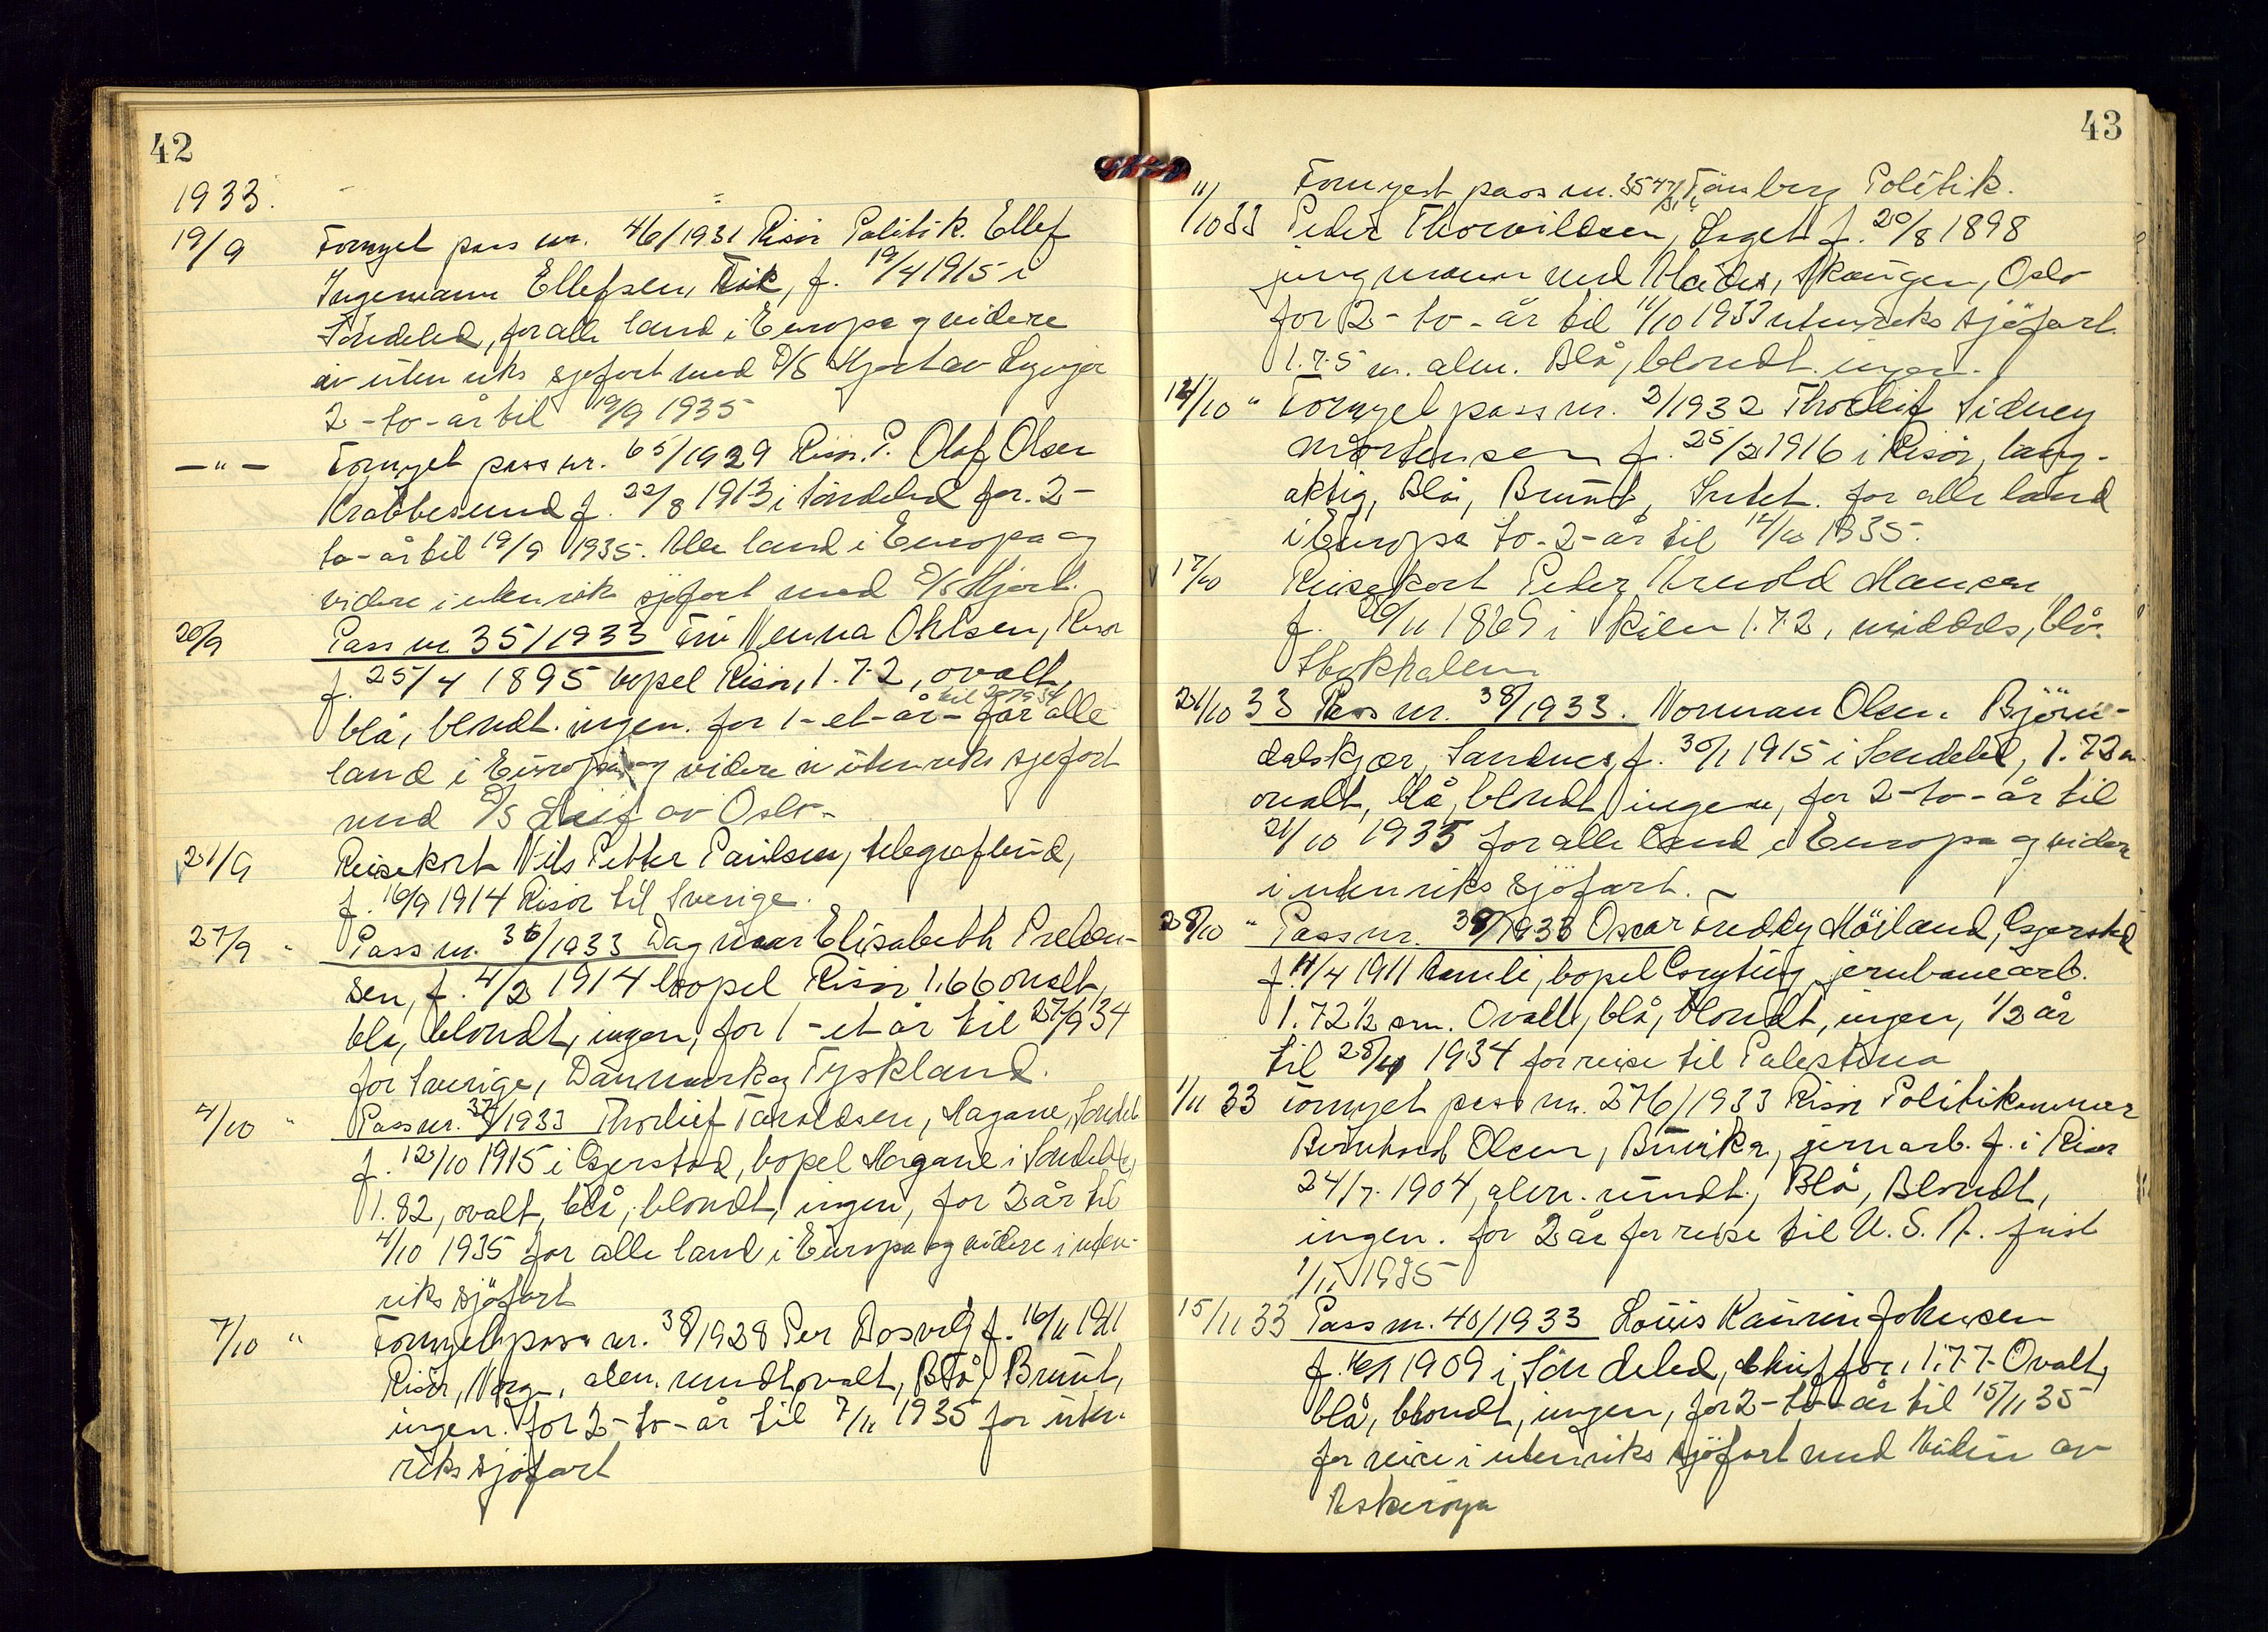 42
1933.
19/9 Fornyet pass nr. 46/1931 Risör Politik. Ellef
Ingemann Ellefsen, f. 19/4 1915 i
Söndeled, for alle land i Europa og videre
av utenriks sjøfart med D/S Hjort av Lyngör
2-to-år til 19/9 1935
—"— Fornyet pass nr. 65/1929 Risör. P. Olaf Olsen
Krabbesund f. 22/8 1913 i Söndeled for. 2-
to-år til 19/9 1935. Alle land i Europa og
videre i utenriks sjøfart med D/S Hjort.
20/9 Pass nr 35/1933 Frü Nenna Ohlsen, Risör
f. 25/4 1895 bopel Risör, 1.72, ovalt,
blå, blondt. ingen. for 1-et-år- til 20/9 34 for alle
land i Europa og videre i utenriks sjøfart
med D/S Leif av Oslo-
21/9 Reisekort Nils Petter Paulsen, telegrafbud,
f. 16/9 1914 Risör til Sverige.
27/9 " Pass nr. 36/1933 Dagmar Elisabeth Preben-
sen, f. 4/2 1914 bopel Risör 1.66 ovalt,
blå, blondt, ingen, for 1-et år til 27/9 34
for Sverige, Danmark og Tyskland.
4/10 " Pass nr. 37/1933 Thorleif Taraldsen, Hagane, Söndeled
f. 12/10 1915 i Gjerstad, bopel Hagane i Söndeled,
1.82, ovalt, blå, blondt, ingen, for 2 år til
4/10 1935 for alle land i Europa og videre i uten-
riks sjöfart
7/10 " Fornyet pass nr. 38/1928 Per Dosvig f. 16/11 1911
Risör, Norge, alm. rundt ovalt, Blå, Brunt,
ingen. for 2-to-år til 7/11 1935 for uten-
riks sjöfart
43
11/10 33 Fornyet pass nr. 3547/31 Tönsberg Politik.
Peder Thorvildsen, Laget f. 20/8 1898
jungmann med Alcides, Skaugen, Oslo
for 2-to-år til 11/10 1933 utenriks sjöfart.
1.75 m. alm. Blå, blondt. ingen.
12/10 " Fornyet pass nr. 2/1932 Thorleif Sidney
Mortensen f. 25/2 1916 i Risör, lang-
aktig, Blå, Brunt, Intet. for alle land
i Europa to-2-år til 12/10 1935.
17/10 Reisekort Peder Arnold Hansen
f. 26/11 1869 i Kilen 1.72, middels, blå.
Stokkholm
21/10 33 Pass nr. 38/1933. Norman Olsen. Björn-
dalskjær, Sandnes, f. 30/1 1915 i Söndeled, 1.73 m.
ovalt, blå, blondt, ingen, for 2-to-år til
21/10 1935 for alle land i Europa og videre
i utenriks sjöfart.-
28/10 " Pass nr. 39/1933 Oscar Freddy Höiland, Gjerstad
f. 11/4 1911 Aamli, bopel Gryting, jernbanearb.
1.72 1/2 cm. Ovalt, blå, blondt, ingen, 1/2 år
til 28/4 1934 for reise til Palestina
1/11 33 Fornyet pass nr. 276/1933 Risör Politikammer
Bernhard Olsen, Buvika, jernarb. f. i Risör
24/7. 1904, alm. rundt., Blå, Blondt,
ingen. for 2 år for reise til U.S.A. frist
1/11 1935
15/11 33 Pass nr. 40/1933 Louis Kaurin Johnsen
f. 16/1 1909 i Söndeled, chuffør, 1.77- Ovalt,
blå, blondt, ingen, for 2-to-år til 15/11 35
for reise i utenriks sjöfart med Vidin av
Askeröya